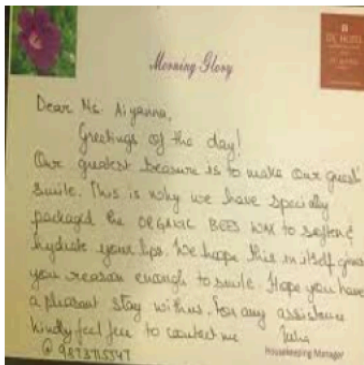 Morning Glory
Dear Ms. Aiyanna,
Greetings of the day!
Our greatest treasure is to make our guest
smile. This is why we have specially
packaged the ORGANIC BEES WAX to soften &
hydrate your lips. We hope this in itself gives
you reason enough to smile. Hope you have
a pleasant stay with us. For any assistance
kindly feel free to contact me
Housekeeping Manager